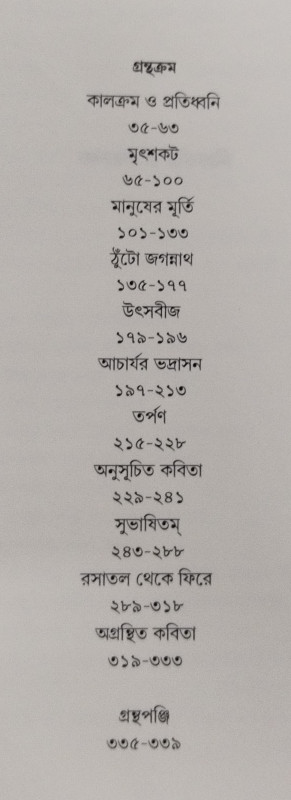 গ্রন্থক্রম
কালক্রম ও প্রতিধ্বনি
৩৫-৬৩
মৃৎশকট
৬৫-১০০
মানুষের মূর্তি
১০১-১৩৩
ঠুঁটো জগন্নাথ
১৩৫-১৭৭
উৎসবীজ
১৭৯-১৯৬
আচার্যর ভদ্রাসন
১৯৭-২১৩
তর্পণ
২১৫-২২৮
অনুসূচিত কবিতা
২২৯-২৪১
সুভাষিতম্
২৪৩-২৮৮
রসাতল থেকে ফিরে
২৮৯-৩১৮
অগ্রন্থিত কবিতা
৩১৯-৩৩৩
গ্রন্থপঞ্জি
৩৩৫-৩৩৯